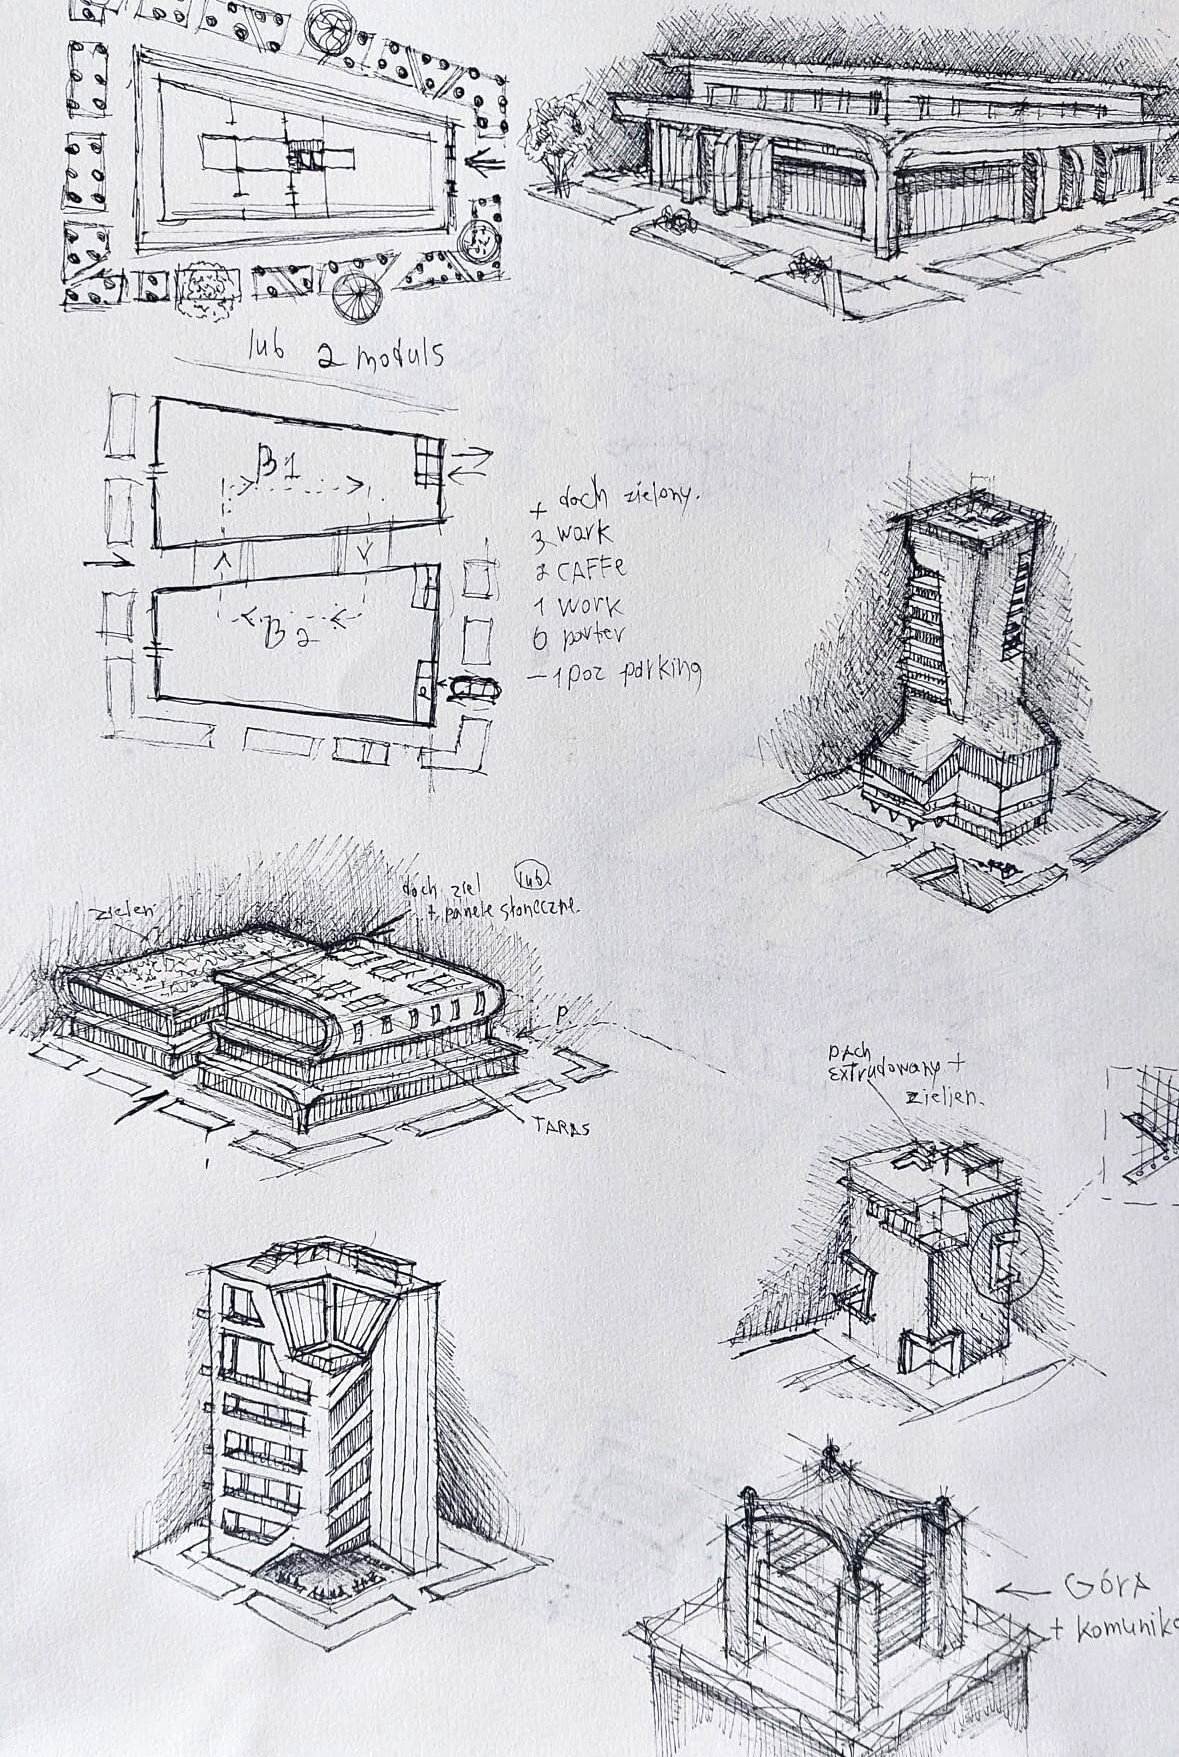 lub 2 moduls
B1
B2
+ dach zielony.
3 work
2 CAFFe
1 work
0 parter
-1 poz parking
zieleń
dach ziel lub
+ panele słoneczne.
P.
TARAS
DACH
extrudowany +
zielien.
GÓRA
+ komunika